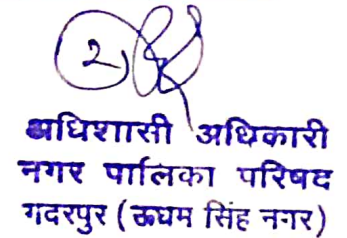 2
अधिशासी अधिकारी
नगर पालिका परिषद
गदरपुर (ऊधम सिंह नगर)